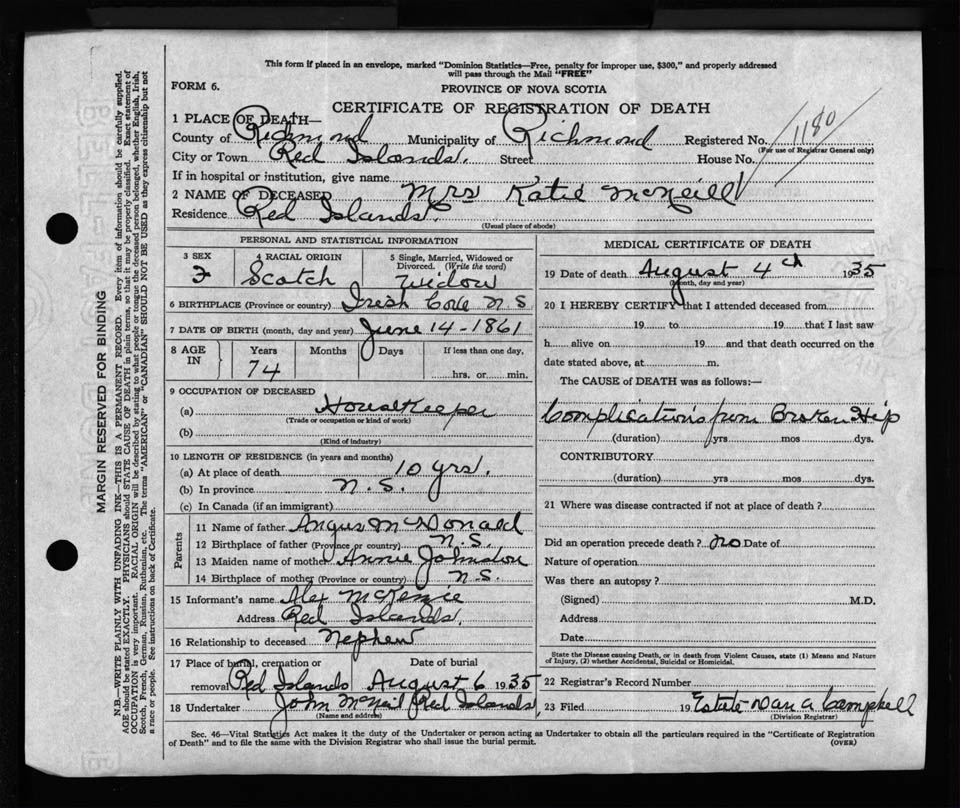 This form if placed in an envelope, marked "Dominion Statistics—Free, penalty for improper use, $300," and properly addressed
will pass through the Mail "FREE"
FORM 6.
PROVINCE OF NOVA SCOTIA
CERTIFICATE OF REGISTRATION OF DEATH
1 PLACE OF DEATH—
County of Richmond Municipality of Richmond Registered No. 1180
(For use of Registrar General only)
City or Town Red Islands. Street House No.
If in hospital or institution, give name
2 NAME OF DECEASED Mrs Katie McNeill
Residence Red Islands
(Usual place of abode)
PERSONAL AND STATISTICAL INFORMATION
3 SEX 4 RACIAL ORIGIN 5 Single, Married, Widowed or
Divorced. (Write the word)
F Scotch Widow
6 BIRTHPLACE (Province or country) Irish Cove N S
7 DATE OF BIRTH (month, day and year) June 14-1861
8 AGE IN Years Months Days If less than one day,
74 hrs. or min.
9 OCCUPATION OF DECEASED
(a) Housekeeper
(Trade or occupation or kind of work)
(b)
(Kind of industry)
10 LENGTH OF RESIDENCE (in years and months)
(a) At place of death 10 yrs.
(b) In province N.S.
(c) In Canada (if an immigrant)
Parents
11 Name of father Angus McDonald
12 Birthplace of father (Province or country) N.S.
13 Maiden name of mother Annie Johnston
14 Birthplace of mother (Province or country) N.S.
15 Informant's name Alex McKenzie
Address Red Islands.
16 Relationship to deceased Nephew
17 Place of burial, cremation or Date of burial
removal Red Islands August 6 1935
18 Undertaker John McNeil Red Islands
(Name and address)
MEDICAL CERTIFICATE OF DEATH
19 Date of death August 4th 1935
(Month, day and year)
20 I HEREBY CERTIFY that I attended deceased from
19 to 19 that I last saw
h alive on 19 and that death occurred on the
date stated above, at m.
The CAUSE of DEATH was as follows:—
Complications from Broken Hip
(duration) yrs mos dys.
CONTRIBUTORY
(duration) yrs mos dys.
21 Where was disease contracted if not at place of death?
Did an operation precede death? no Date of
Nature of operation
Was there an autopsy?
(Signed) M.D.
Address
Date
State the Disease causing Death, or in death from Violent Causes, state (1) Means and Nature
of Injury, (2) whether Accidental, Suicidal or Homicidal.
22 Registrar's Record Number
23 Filed 19 Estate Dan A Campbell
(Division Registrar)
Sec. 46—Vital Statistics Act makes it the duty of the Undertaker or person acting as Undertaker to obtain all the particulars required in the "Certificate of Registration
of Death" and to file the same with the Division Registrar who shall issue the burial permit.
(OVER)
MARGIN RESERVED FOR BINDING
N.B.—WRITE PLAINLY WITH UNFADING INK—THIS IS A PERMANENT RECORD. Every item of information should be carefully supplied.
AGE should be stated EXACTLY. PHYSICIANS should STATE CAUSE OF DEATH in plain terms, so that it may be properly classified. Exact statement of
OCCUPATION is very important. RACIAL ORIGIN will be described by stating to what people or tongue the deceased person belonged, whether English, Irish,
Scotch, French, German, Russian, Ruthenian, etc. The terms "AMERICAN" or "CANADIAN" SHOULD NOT BE USED as they express citizenship but not
a race or people. See instructions on back of Certificate.